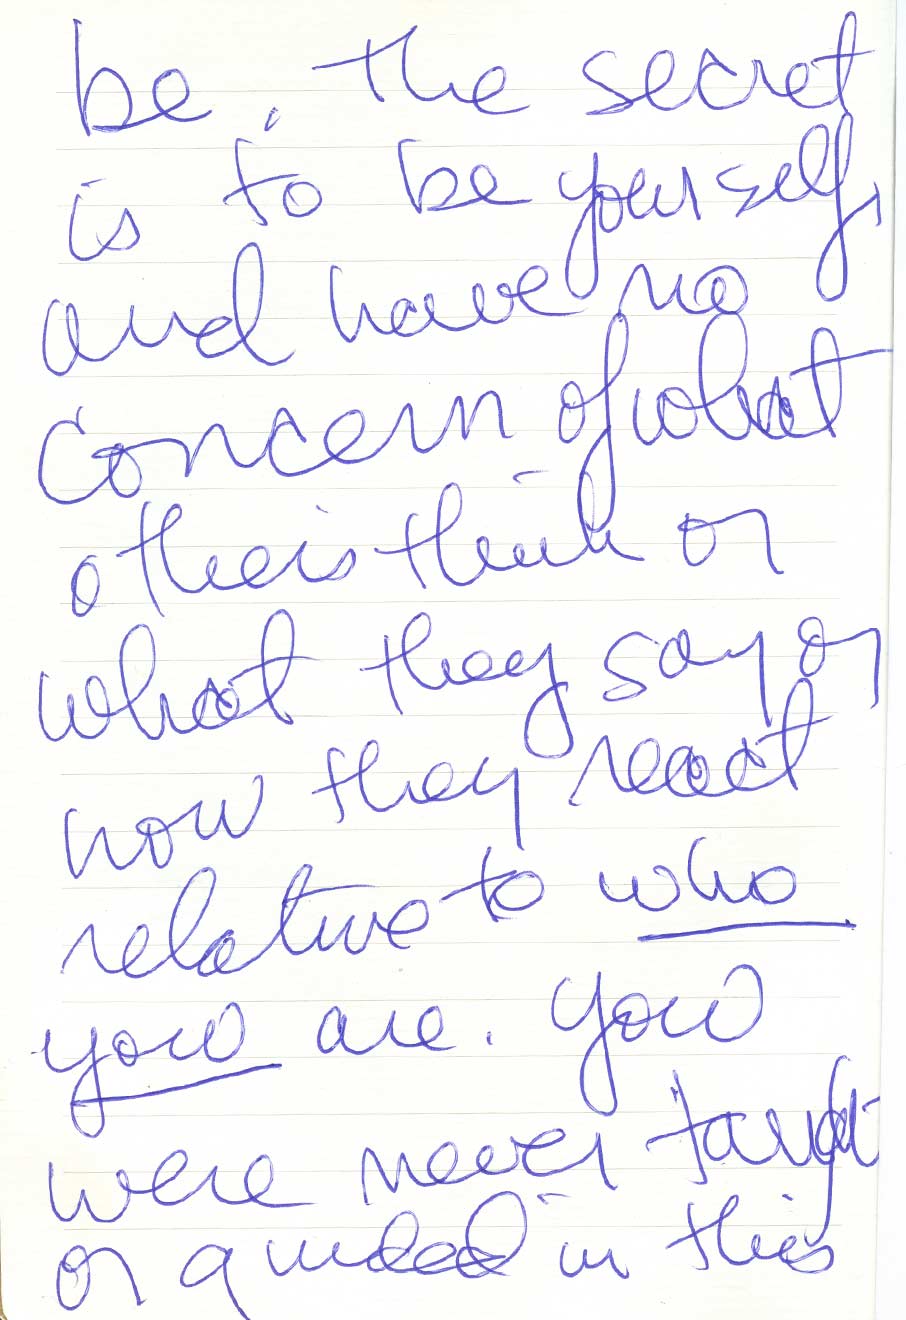 be. The secret
is to be yourself,
and have no
concern of what
others think or
what they say or
how they react
relative to who
you are. You
were never taught
or guided in this